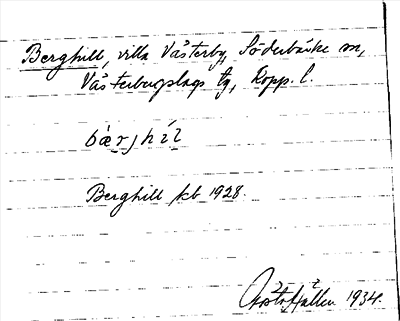 Berghill, villa Västerby, Söderbärke sn,
Västerbergslags tg, Kopp. l.
bærjhil
Berghill kb 1928.
Gösta Hallén 1934.